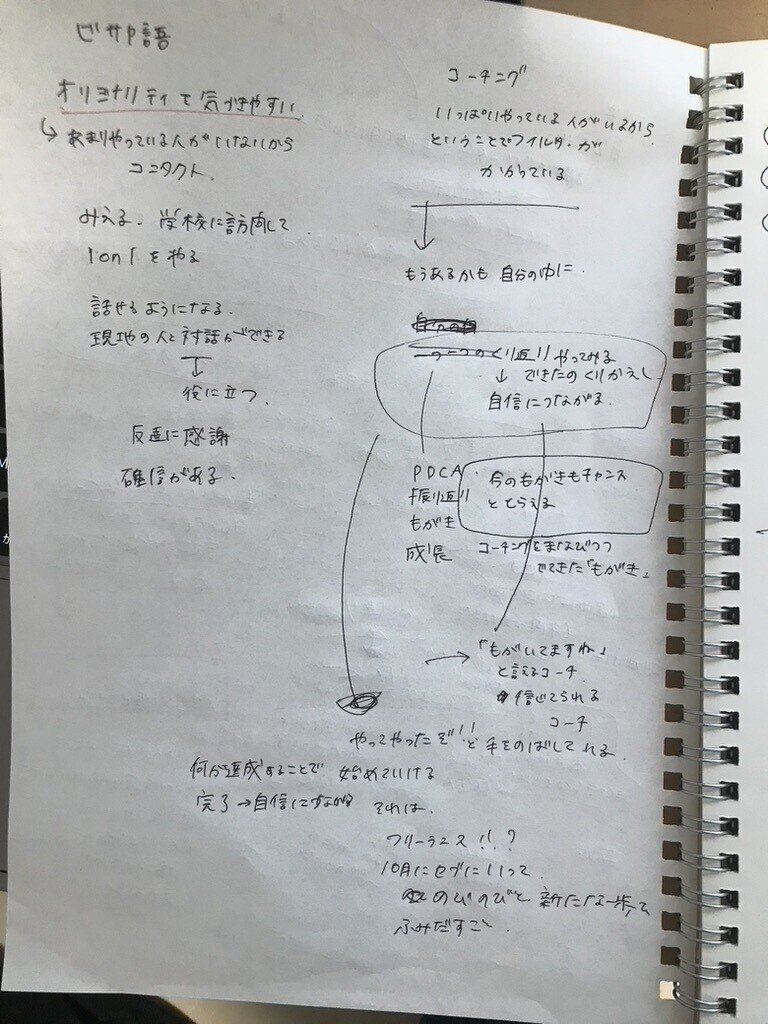 ビサヤ語
オリジナリティで気づきやすい
↳ あまりやっている人がいないから
コンタクト.
みえる. 学校に訪問して
1on1をやる
話せるようになる.
現地の人と対話ができる
↓
役に立つ.
反応に感謝
確信がある.
コーチング
いっぱいやっている人がいるから.
ということでフィルターが
かかっている
↓
もうあるかも 自分の中に
一つ一つのくり返し やってみる
↓ できたのくりかえし
自信につながる.
PDCA.
振り返り
もがき
成長
今のもがきもチャンス
ととらえる
コーチングをまなびつつ
でてきた「もがき」
→ 「もがいてますね」
と言えるコーチ
信じてられる
コーチ
やってやったぞ!! と手をのばしている.
何か達成することで 始めていける
完了→自信につながる それは.
フリーランス!!?
10月にセブにいって.
のびのびと 新たな一歩を
ふみだすこと.